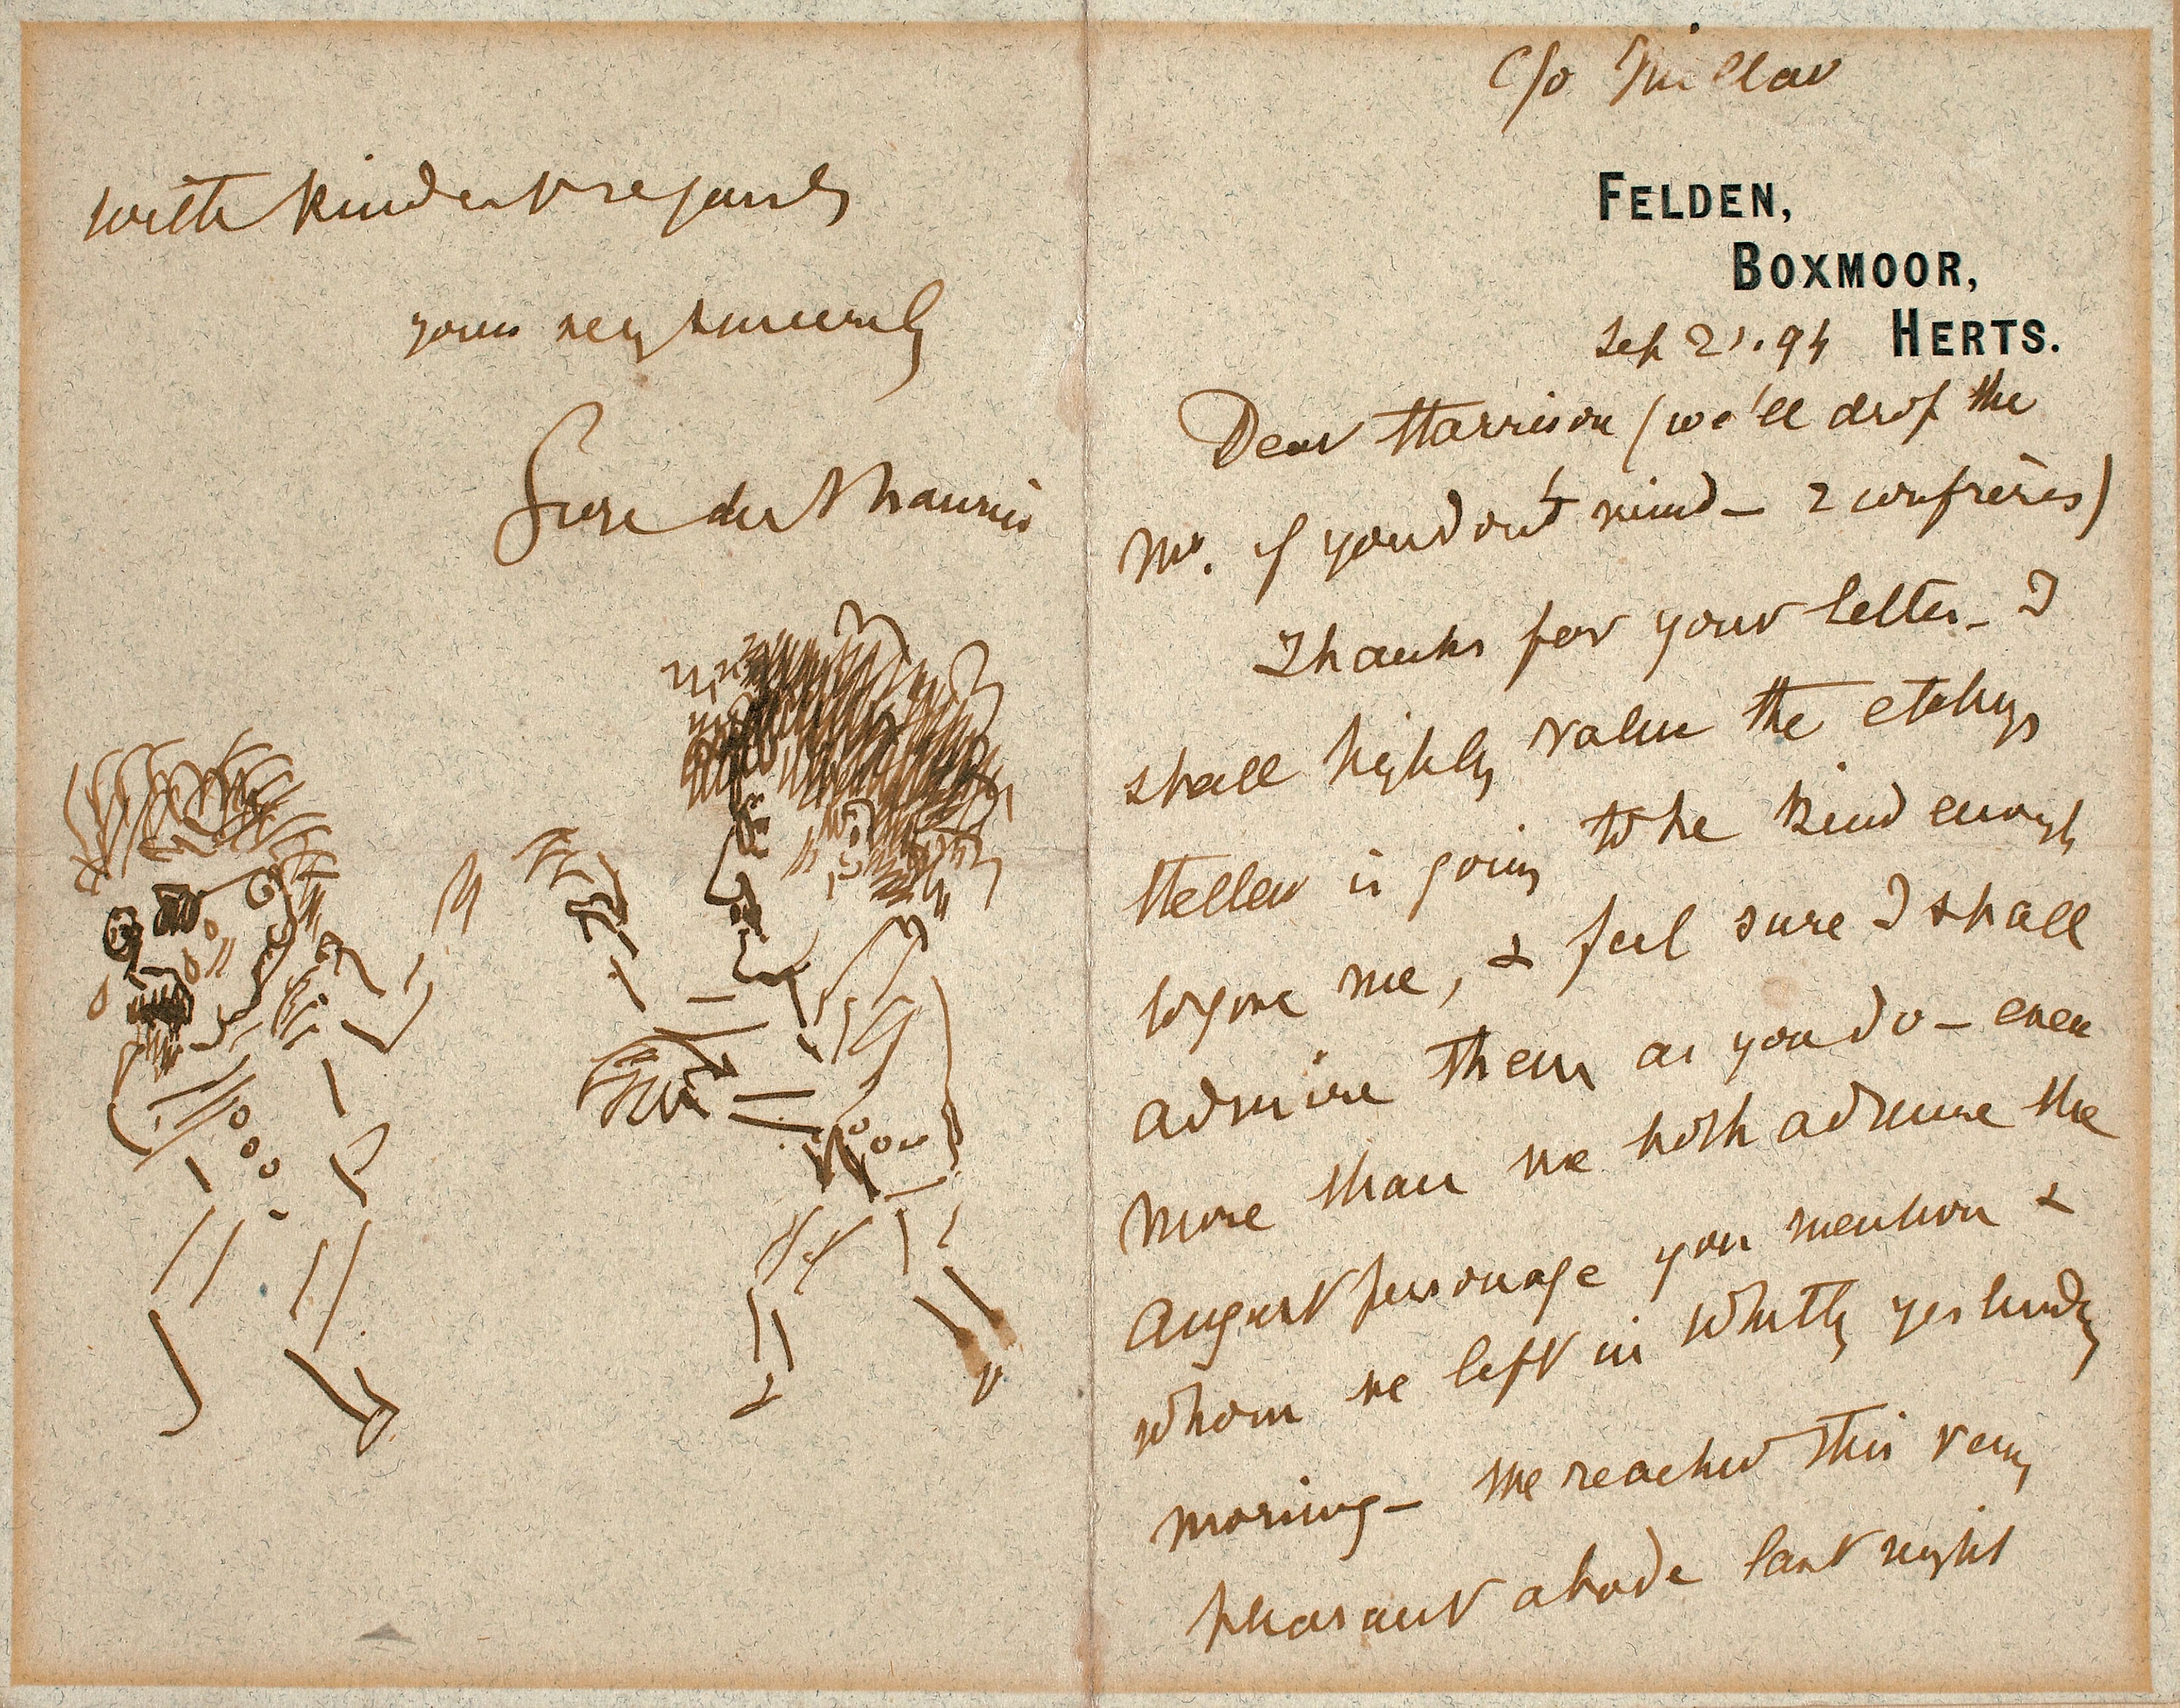 c/o Millar
FELDEN,
BOXMOOR,
HERTS.
Sep 21. 94
Dear Harrison (we'll drop the
Mr. if you don't mind — 2 confrères)
Thanks for your letter — I
shall highly value the etchings
Heller is going to be kind enough
to give me, & feel sure I shall
admire them as you do — even
more than we both admire the
august personage you mention &
whom we left in Whitby yesterday
morning — We reached this very
pleasant abode last night
with kindest regards
yours very sincerely
du Maurier